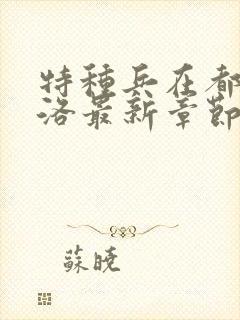 特種兵在都
洛最新章節
蘇曉